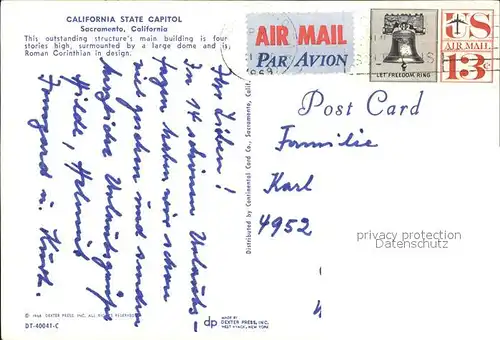 CALIFORNIA STATE CAPITOL
Sacramento, California
This outstanding structure's main building is four
stories high, surmounted by a large dome and is
Roman Corinthian in design.
AIR MAIL
PAR AVION
LET FREEDOM RING
US
AIR MAIL
13c
1969
Post Card
Familie
Karl
4952
Ihr Lieben!
In 14 schönen Urlaubs-
tagen haben wir schon
viel gesehen und senden
herzliche Urlaubsgrüße
Hilde, Helmut
Irmgard u. Kurt.
Distributed by Continental Card Co., Sacramento, Calif.
privacy protection
Datenschutz
© 1968 DEXTER PRESS, INC. ALL RIGHTS RESERVED
DT-40041-C
dp
MADE BY
DEXTER PRESS, INC.
WEST NYACK, NEW YORK